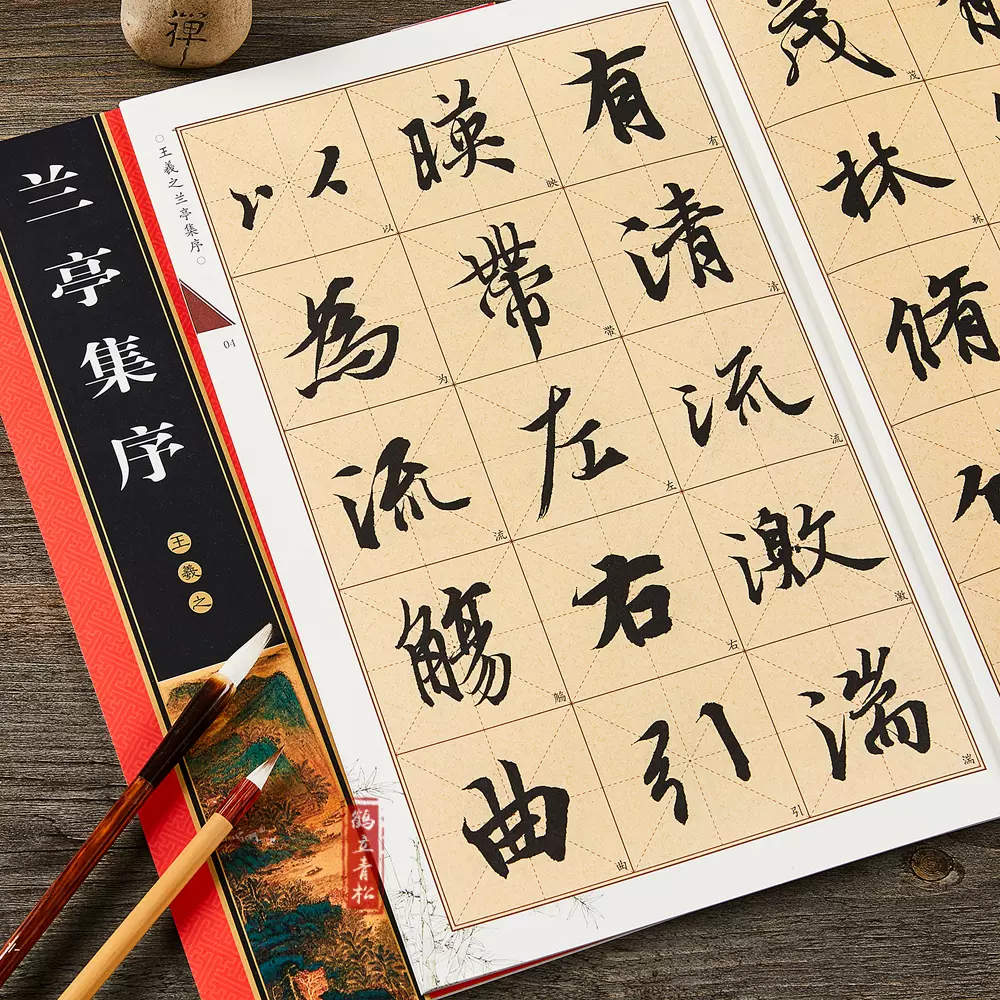 禪
兰亭集序
王羲之
○王羲之兰亭集序○
04
茂林脩
茂
林
有清流激湍
有
清
流
激
湍
暎帶左右引
映
带
左
右
引
以為流觴曲
以
为
流
觞
曲
鶴立青松